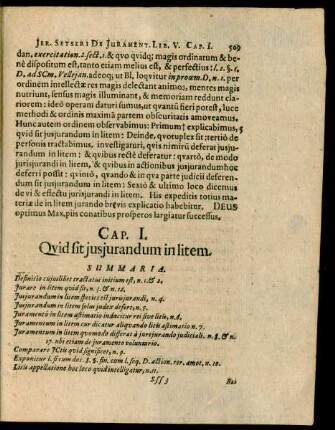 Jer. Setseri De Jurament. Lib. V. Cap. I. 509
dan. exercitation. 2. sect. 1. & qvo qvidq; magis ordinatum & be-
nè dispositum est, tanto etiam melius est, & perfectius: l. 2. §. 1.
D. ad SCm. Vellejan. adeoq; ut Bl. loqvitur in proœm. D. n. 1. per
ordinem intellectæ res magis delectant animos, mentes magis
nutriunt, sensus magis illuminant, & memoriam reddunt cla-
riorem: ideò operam daturi sumus, ut qvantũ fieri potest, luce
methodi & ordinis maximâ partem obscuritatis amoveamus.
Hunc autem ordinem observabimus: Primum explicabimus,
qvid sit jusjurandum in litem: Deinde, qvotuplex sit: tertiò de
personis tractabimus, investigaturi, qvis nimirũ deferat jusju-
randum in litem; & qvibus rectè deferatur: qvartò, de modo
jurisjurandi in litem, & qvibus in actionibus jusjurandum hoc
deferri possit: qvintò, qvando & in qva parte judicii deferen-
dum sit jusjurandum in litem: Sextò & ultimo loco dicemus
de vi & effectu jurisjurandi in litem. His expeditis totius ma-
teriæ de in litem jurando brevis explicatio habebitur. DEUS
optimus Max. piis conatibus prosperos largiatur successus.
Cap. I.
Qvid sit jusjurandum in litem.
SUMMARIA.
Definitio cujuslibet tractatus initium est, n. 1. & 2.
Jurare in litem qvid sit, n. 3. & n. 12.
Jusjurandum in litem species est jurisjurandi, n. 4.
Jusjurandum in litem solus judex defert, n. 5.
Juramentô in litem æstimatio inducitur rei sive litis, n. 6.
Juramentum in litem cur dicatur aliqvando litis æstimatio n. 7.
Juramentum in litem qvomodo differat à jurejurando judiciali. n. 8. & n.
17. ubi etiam de juramento voluntario.
Comparare JCtis qvid significet, n. 9.
Exponitur l. ficum dec. §. 5. fin. cum l. seq. D. action. rer. amot. n. 10.
Litis appellatione hoc loco qvid intelligatur, n. 11.
Sss 3